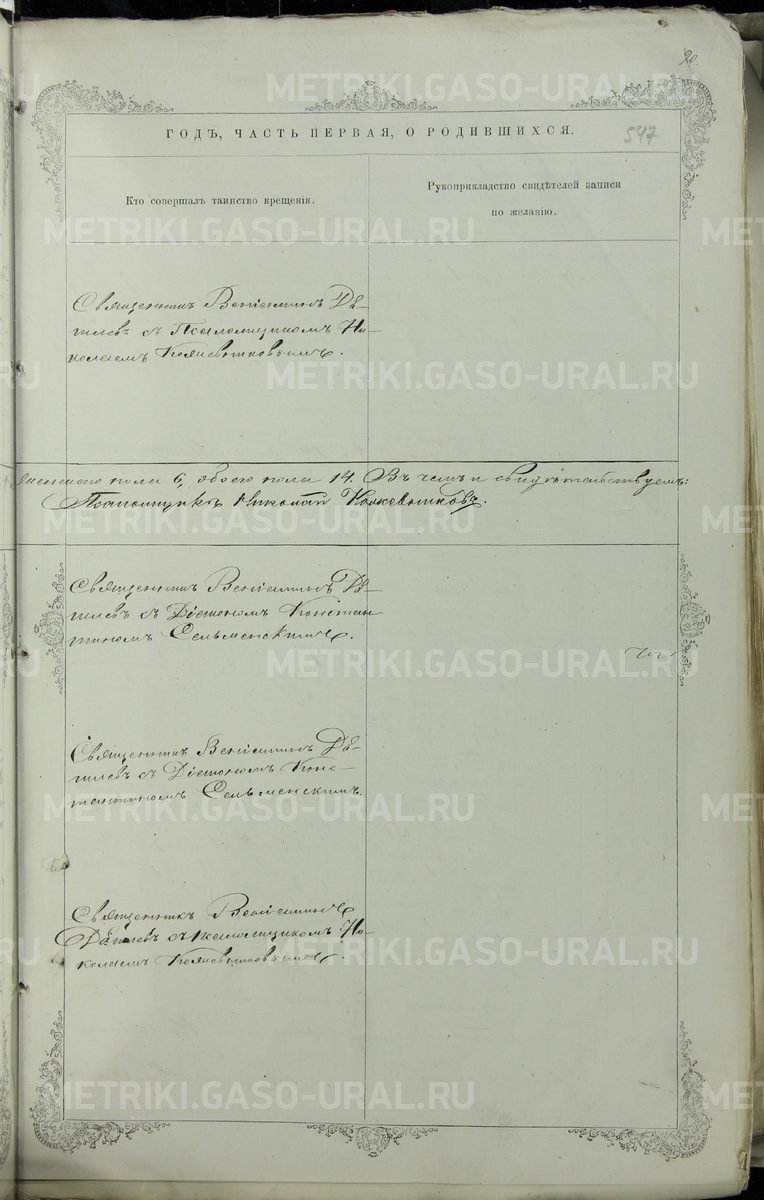 20
547
ГОДЪ, ЧАСТЬ ПЕРВАЯ, О РОДИВШИХСЯ.
Кто совершалъ таинство крещенія.
Рукоприкладство свидѣтелей записи
по желанію.
Священникъ Веніаминъ Дѣ-
тлевъ съ Псаломщикомъ Ни-
колаемъ Кожевниковымъ.
женского пола 6, обоего пола 14. Въ чемъ и свидѣтельствуемъ:
Псаломщикъ Николай Кожевниковъ.
Священникъ Веніаминъ Дѣ-
тлевъ съ Діакономъ Констан
тиномъ Сельменскимъ.
Священникъ Веніаминъ Дѣ-
тлевъ съ Діакономъ Конс-
тантиномъ Сельменскимъ.
Священникъ Веніаминъ
Дѣтлевъ съ псаломщикомъ Ни-
колаемъ Кожевниковымъ.
METRIKI.GASO-URAL.RU